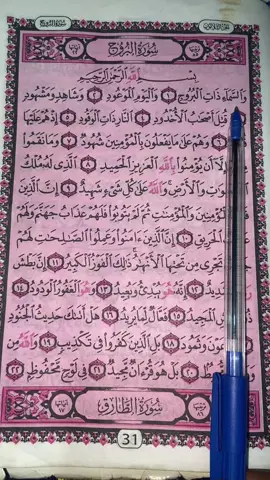 سُورَةُ الْبُرُوجِ
بِسْمِ اللَّهِ الرَّحْمَٰنِ الرَّحِيمِ
وَالسَّمَاءِ ذَاتِ الْبُرُوجِ ١ وَالْيَوْمِ الْمَوْعُودِ ٢ وَشَاهِدٍ وَمَشْهُودٍ
قُتِلَ أَصْحَابُ الْأُخْدُودِ ٤ النَّارِ ذَاتِ الْوَقُودِ ٥ إِذْ هُمْ عَلَيْهَا
٦ وَهُمْ عَلَىٰ مَا يَفْعَلُونَ بِالْمُؤْمِنِينَ شُهُودٌ ٧ وَمَا نَقَمُوا
إِلَّا أَنْ يُؤْمِنُوا بِاللَّهِ الْعَزِيزِ الْحَمِيدِ ٨ الَّذِي لَهُ مُلْكُ
وَالْأَرْضِ وَاللَّهُ عَلَىٰ كُلِّ شَيْءٍ شَهِيدٌ ٩ إِنَّ الَّذِينَ
الْمُؤْمِنِينَ وَالْمُؤْمِنَاتِ ثُمَّ لَمْ يَتُوبُوا فَلَهُمْ عَذَابُ جَهَنَّمَ وَلَهُمْ
الْحَرِيقِ ١٠ إِنَّ الَّذِينَ آمَنُوا وَعَمِلُوا الصَّالِحَاتِ لَهُمْ
تَجْرِي مِنْ تَحْتِهَا الْأَنْهَارُ ذَٰلِكَ الْفَوْزُ الْكَبِيرُ ١١ إِنَّ بَطْشَ
١٢ إِنَّهُ هُوَ يُبْدِئُ وَيُعِيدُ ١٣ وَهُوَ الْغَفُورُ الْوَدُودُ ١٤
الْمَجِيدُ ١٥ فَعَّالٌ لِمَا يُرِيدُ ١٦ هَلْ أَتَاكَ حَدِيثُ الْجُنُودِ
وَثَمُودَ ١٨ بَلِ الَّذِينَ كَفَرُوا فِي تَكْذِيبٍ ١٩ وَاللَّهُ مِنْ
٢٠ بَلْ هُوَ قُرْآنٌ مَجِيدٌ ٢١ فِي لَوْحٍ مَحْفُوظٍ ٢٢
سُورَةُ الطَّارِقِ
31